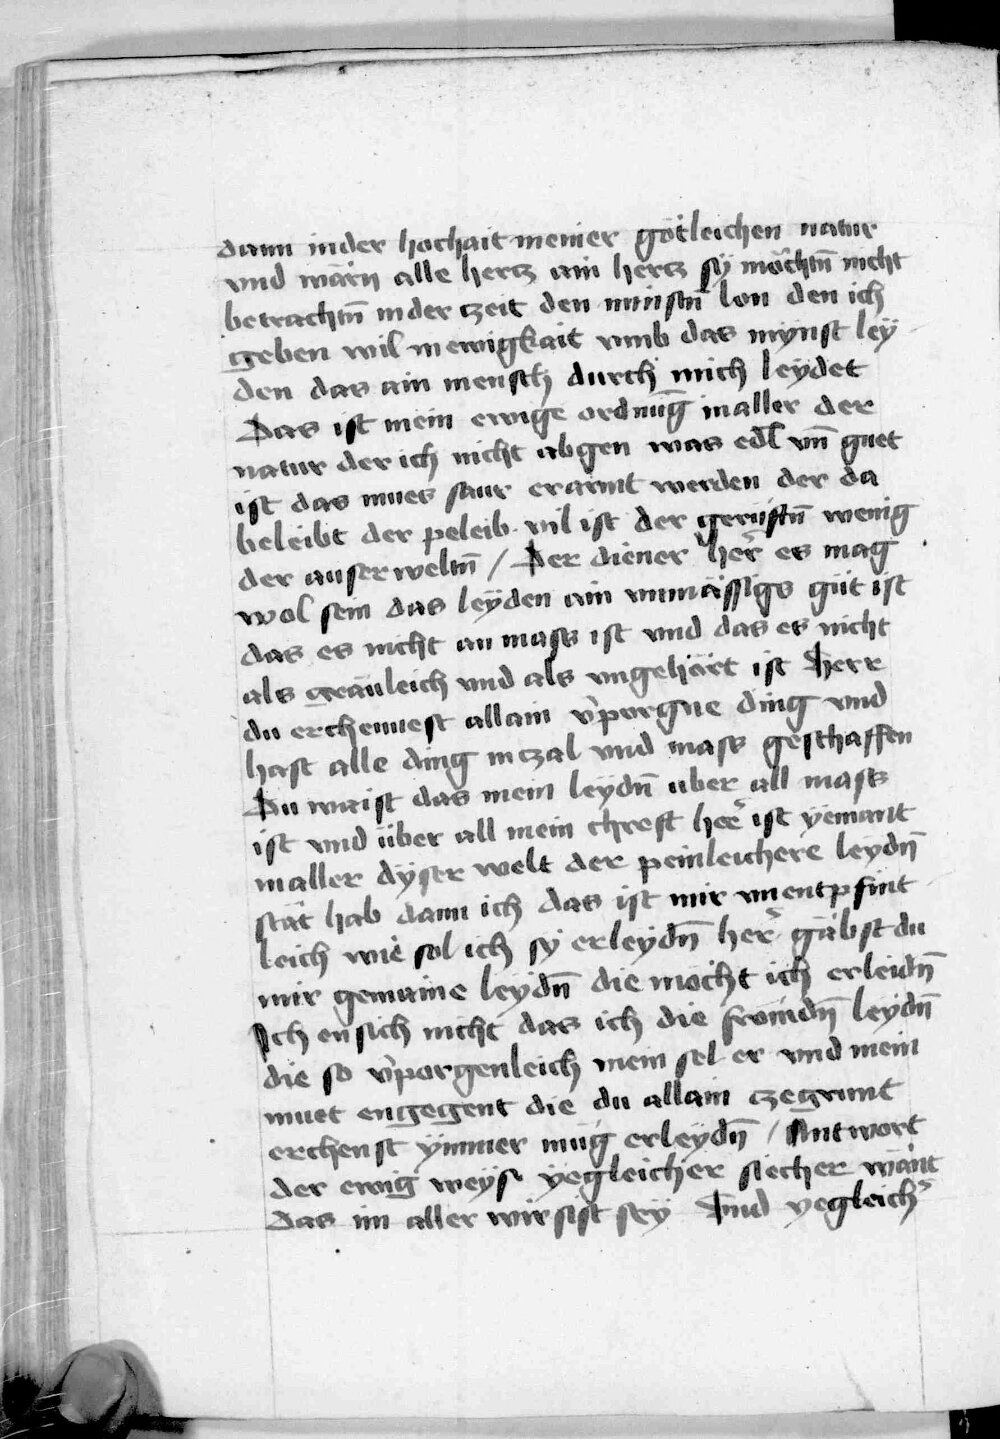 dann in der hochait meiner götleichen natur
vnd wärn alle hercz ain hercz sÿ möchtn̄ nicht
betrachtn̄ in der czeit den minstn̄ lon den ich
geben wil in ewigkait vmb das mÿnst leÿ
den das ain mensch durch mich leÿdet
Das ist mein ewige ordnūg in aller der
natur der ich nicht abgen was edl vn̄ guet
ist das mues saur erarnt werden der da
beleibt der peleib vil ist der gerüftn̄ wenig
der auserweltn̄ / Der diener her̄ es mag
wol sein das leÿden ain vnmässigs güt ist
das es nicht an mass ist vnd das es nicht
als gräuleich vnd als vngehört ist Herr
du erchennest allain v̄porgne ding vnd
hast alle ding in czal vnd mass geschaffen
Du waist das mein leÿdn̄ uber all mass
ist vnd über all mein chrest her̄ ist ÿemant
in aller dÿser welt der peinleichere leÿdn̄
stät hab dann ich das ist mir vnentpfint
leich wie sol ich sÿ erleÿdn̄ her̄ gäbst du
mir gemaine leÿdn̄ die möcht ich erleidn̄
Ich ensich nicht das ich die frömdn̄ leÿdn̄
die so v̄porgenleich mein sel er vnd mein
muet engegent die du allain czegrunt
erchenst ÿmmer müg erleÿdn̄ / Antwort
der ewig weÿs ÿegleicher siecher wänt
das im aller wirsist seÿ Vnd yegleich̄